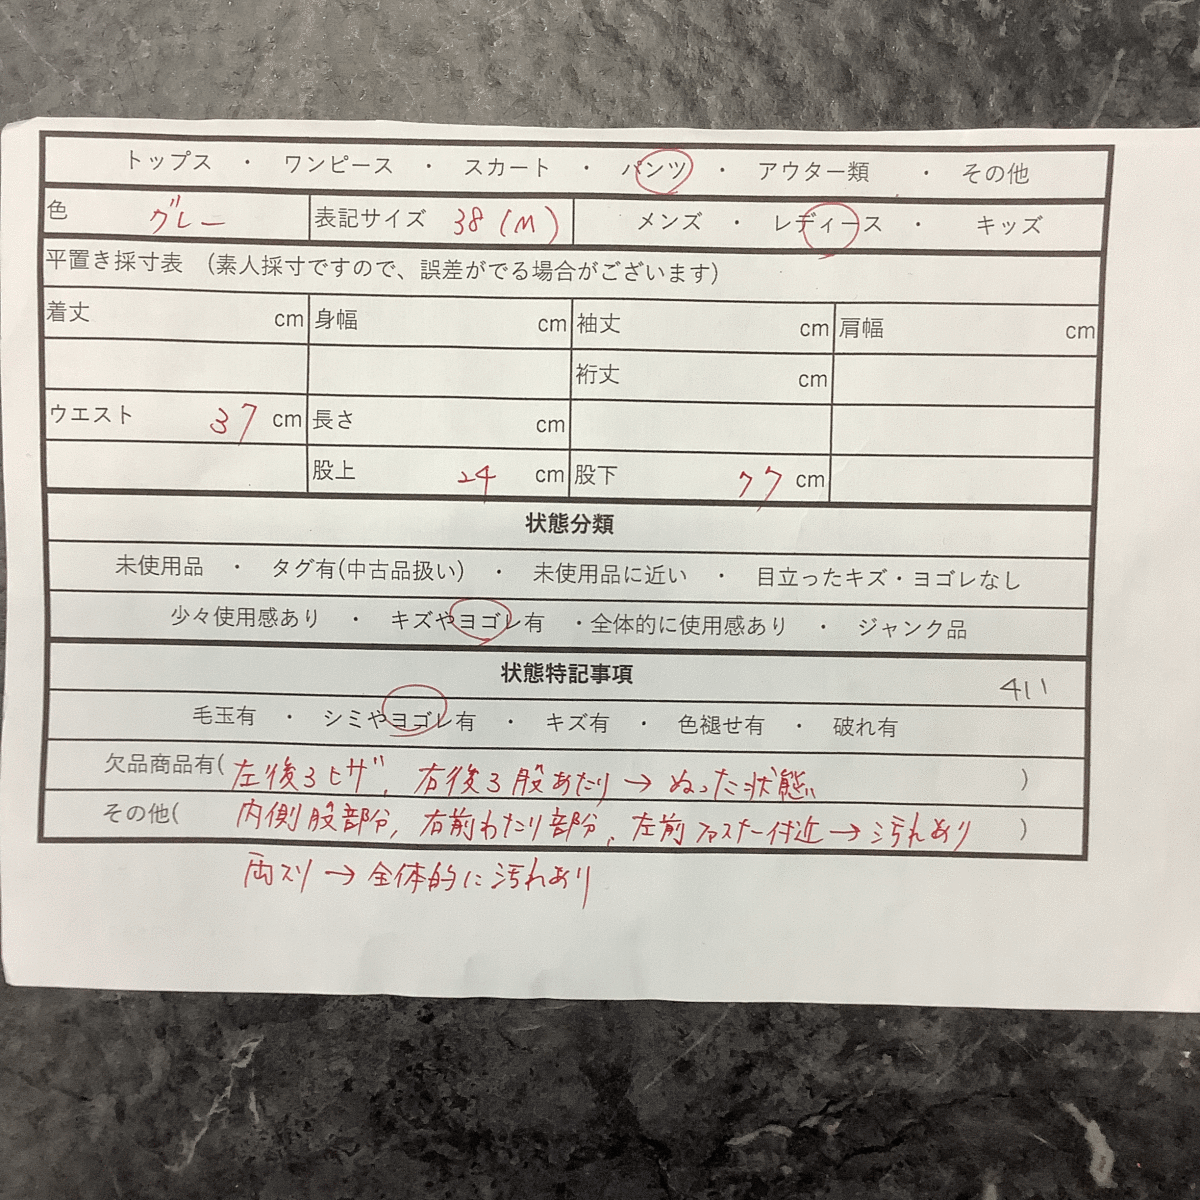 トップス ・ ワンピース ・ スカート ・ パンツ ・ アウター類 ・ その他
色 グレー 表記サイズ 38(M) メンズ ・ レディース ・ キッズ
平置き採寸表 (素人採寸ですので、誤差がでる場合がございます)
着丈 cm 身幅 cm 袖丈 cm 肩幅 cm
裄丈 cm
ウエスト 37 cm 長さ cm
股上 24 cm 股下 77 cm
状態分類
未使用品 ・ タグ有(中古品扱い) ・ 未使用品に近い ・ 目立ったキズ・ヨゴレなし
少々使用感あり ・ キズやヨゴレ有 ・全体的に使用感あり ・ ジャンク品
状態特記事項
411
毛玉有 ・ シミやヨゴレ有 ・ キズ有 ・ 色褪せ有 ・ 破れ有
欠品商品有( 左後ろヒザ、右後ろ股あたり→ぬった状態 )
その他( 内側股部分、右前わたり部分、左前ファスナー付近→汚れあり )
両スソ→全体的に汚れあり